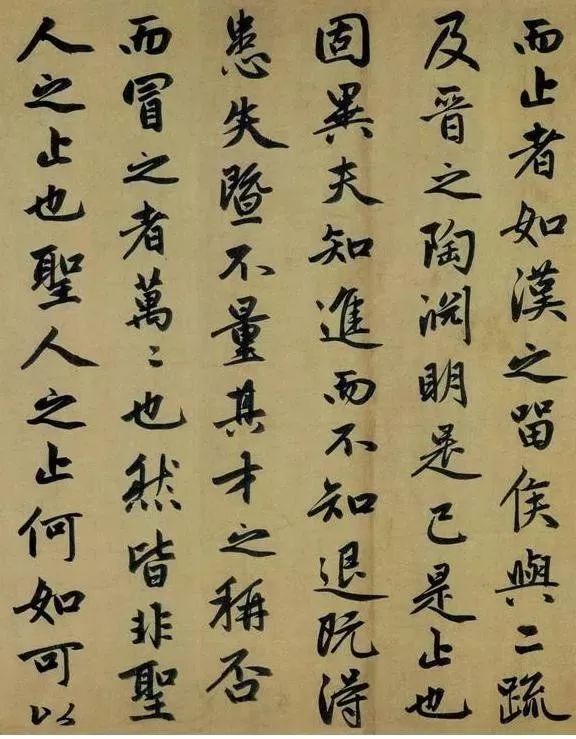 而止者如漢之留侯與二疏
及晋之陶渊明是已是止也
固異夫知進而不知退既得
患失暨不量其才之稱否
而冒之者萬〻也然皆非聖
人之止也聖人之止何如可以